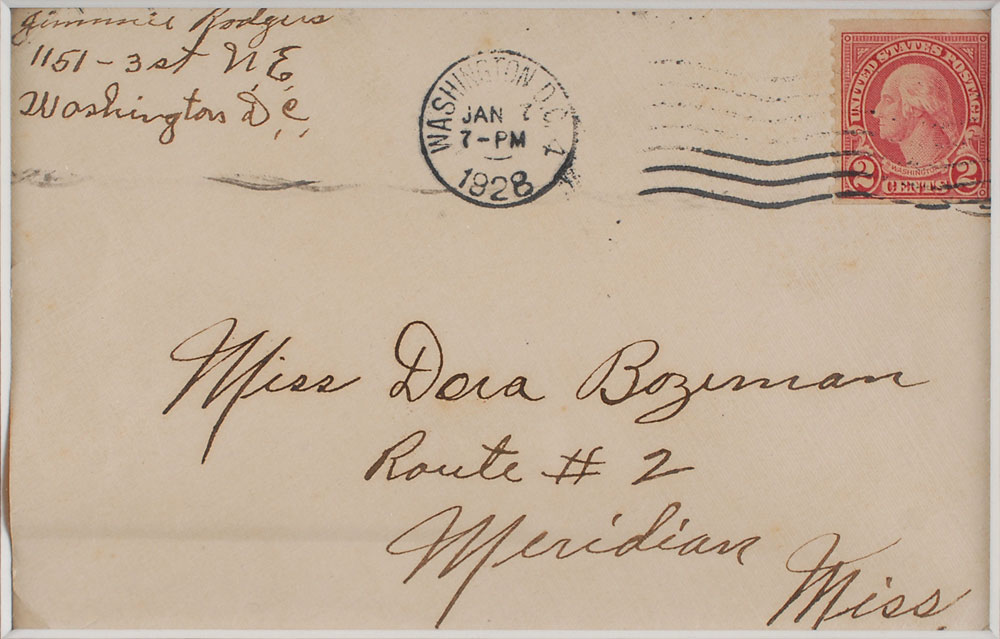 Jimmie Rodgers
1151 - 3st N.E.
Washington D.C.
WASHINGTON, D.C. 4
JAN 7
7-PM
1928
UNITED STATES POSTAGE
WASHINGTON
2 CENTS 2
Miss Dora Bozeman
Route # 2
Meridian
Miss.